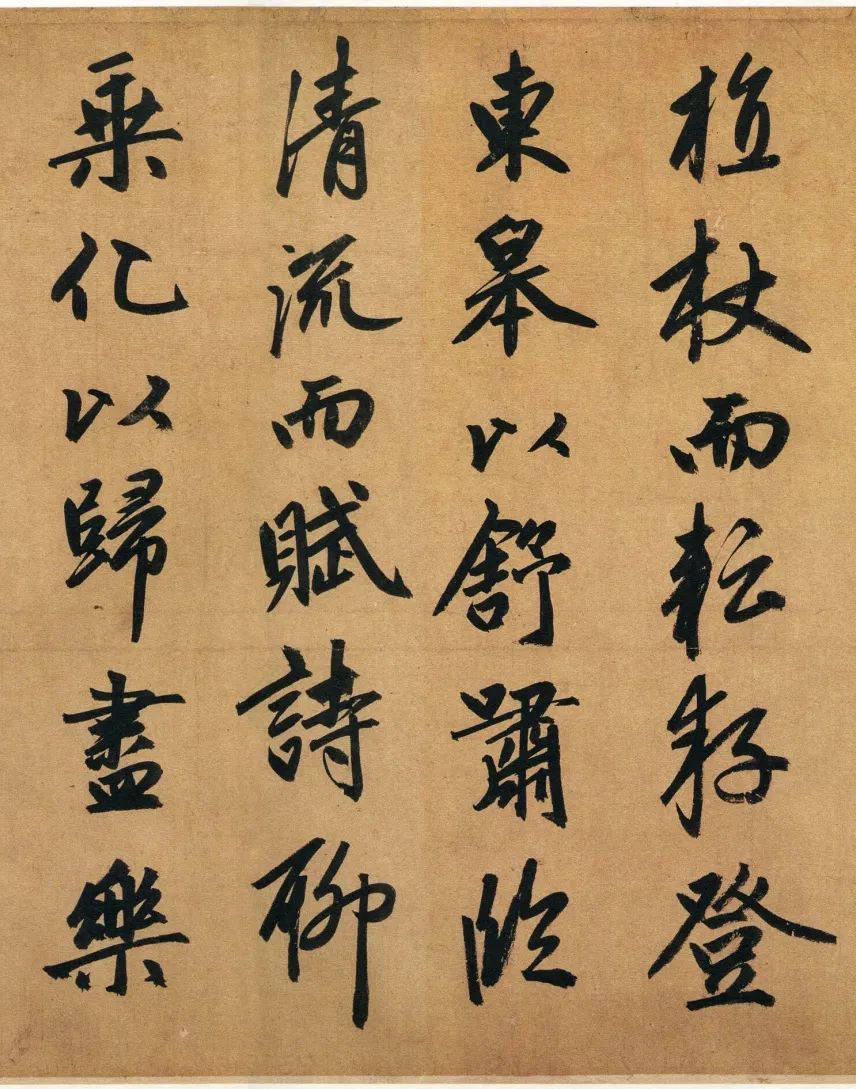 植杖而耘耔登
東皋以舒嘯臨
清流而賦詩聊
乘化以歸盡樂